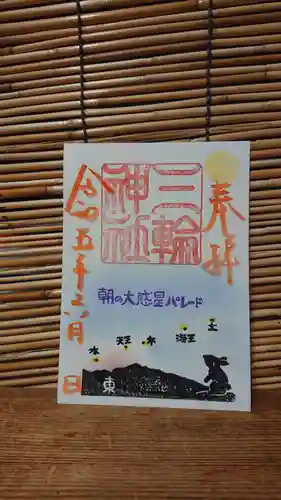 奉拝
三輪
神社
令和五年三月
日
朝の大惑星パレード
土
海王
木
天王
水
東